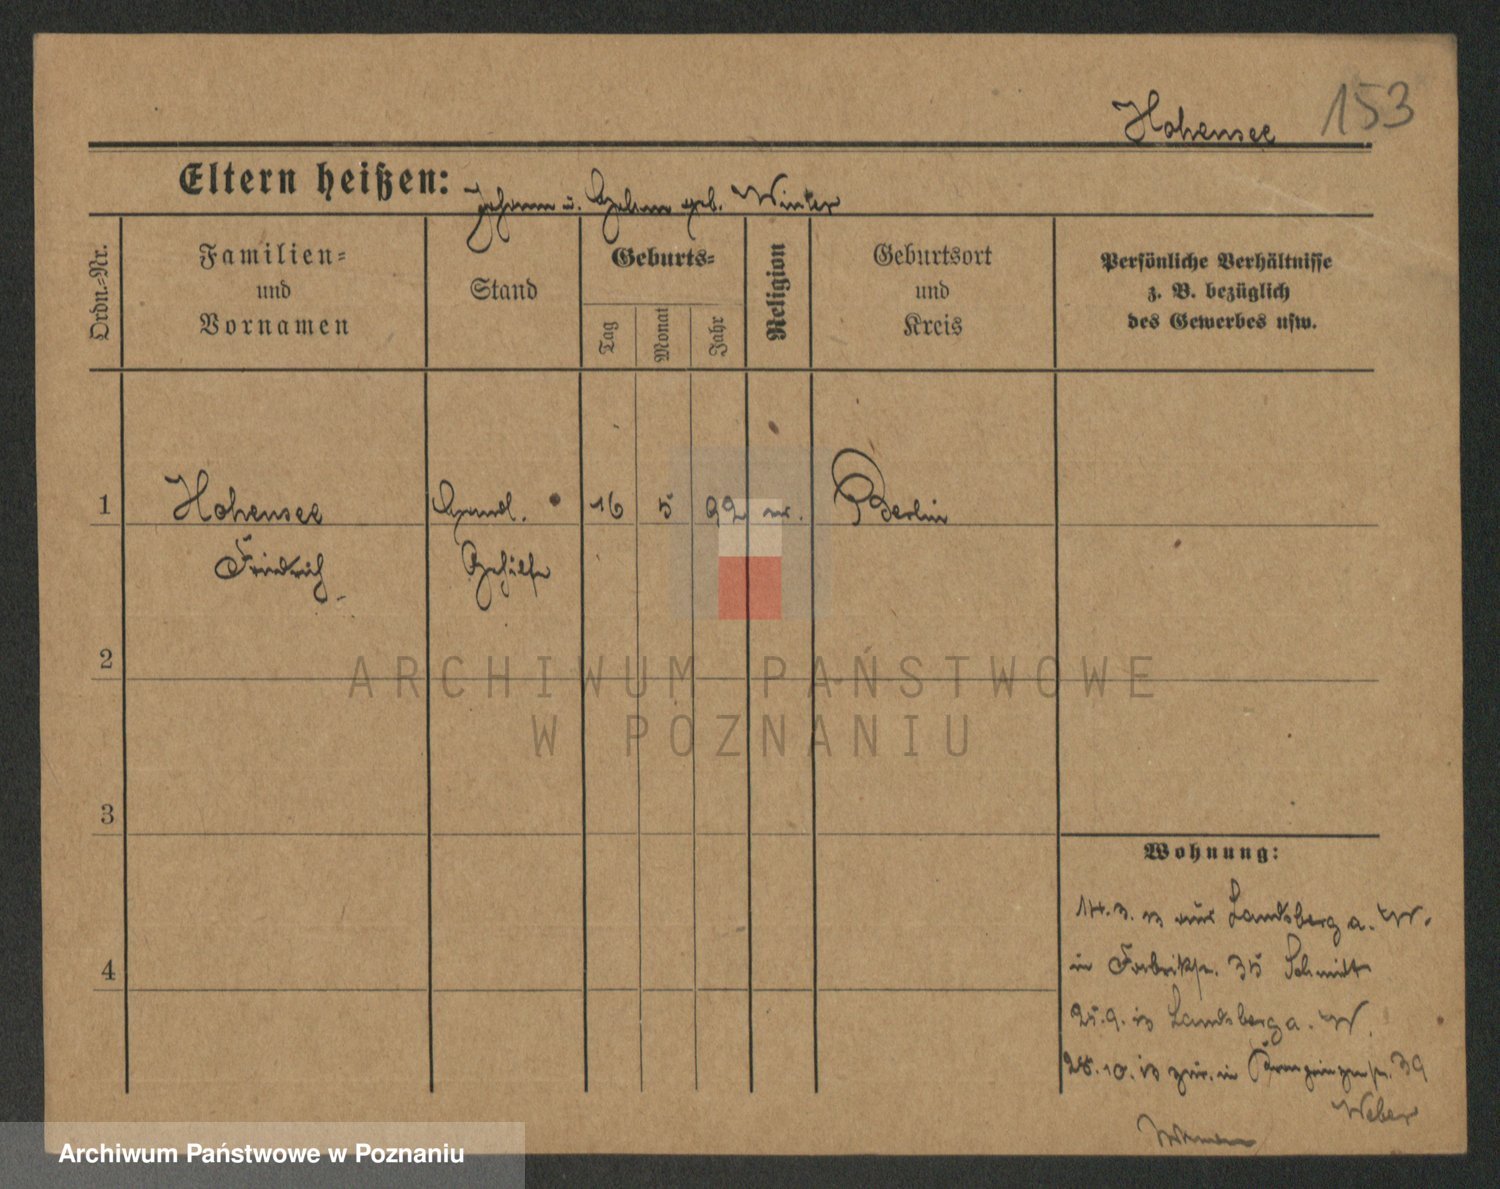 Hohensee 153
Eltern heißen: Johann u. Helene geb. Winter
Ordn.-Nr.
Familien-
und
Vornamen
Stand
Geburts-
Tag
Monat
Jahr
Religion
Geburtsort
und
Kreis
Persönliche Verhältnisse
z. B. bezüglich
des Gewerbes usw.
1 Hohensee Handl. 16 5 92 Berlin
Friedrich Gehilfe
2
ARCHIWUM PAŃSTWOWE
W POZNANIU
3
Wohnung:
14.3. aus Landsberg a. W.
in Fabrikstr. 35 Schmidt
4
25.9. Landsberg a. W.
28.10. zur. in Kronprinzenstr. 39
Weber
Archiwum Państwowe w Poznaniu